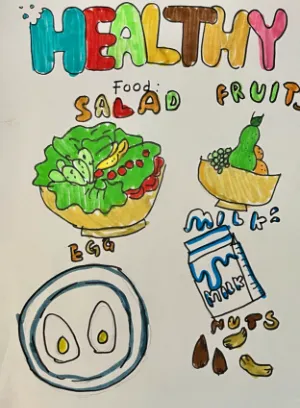 HEALTHY
Food:
SALAD
FRUITS
MILK
EGG
MILK
NUTS